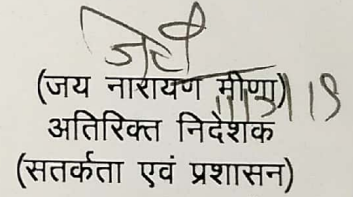 (जय नारायण मीणा)
अतिरिक्त निदेशक
(सतर्कता एवं प्रशासन)